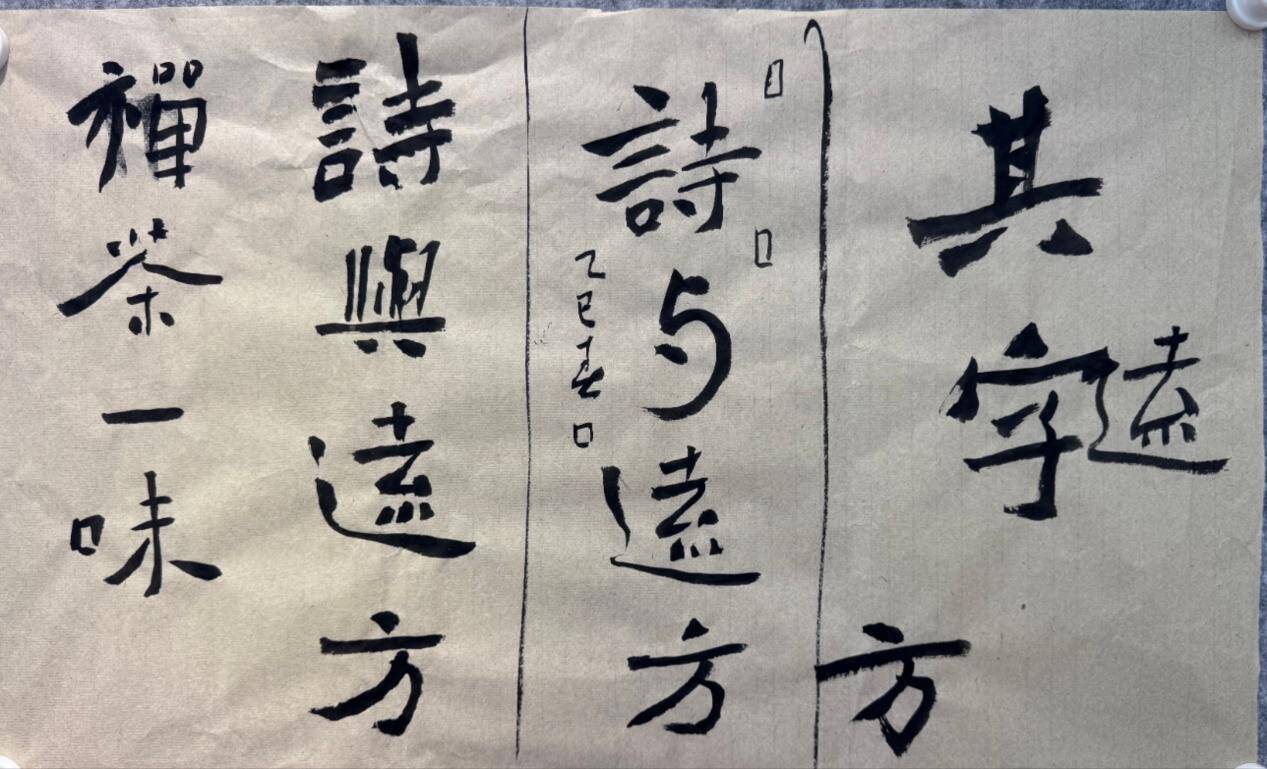 其字方
遠
詩与遠方
乙巳春
詩與遠方
禪茶一味